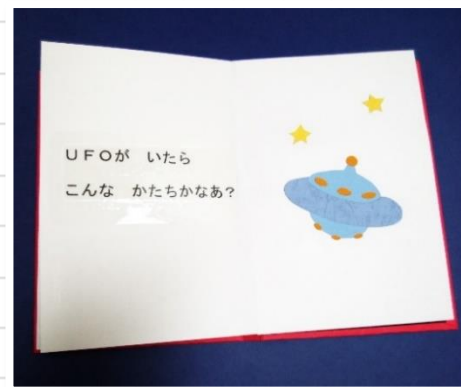 UFOが　いたら
こんな　かたちかなあ?